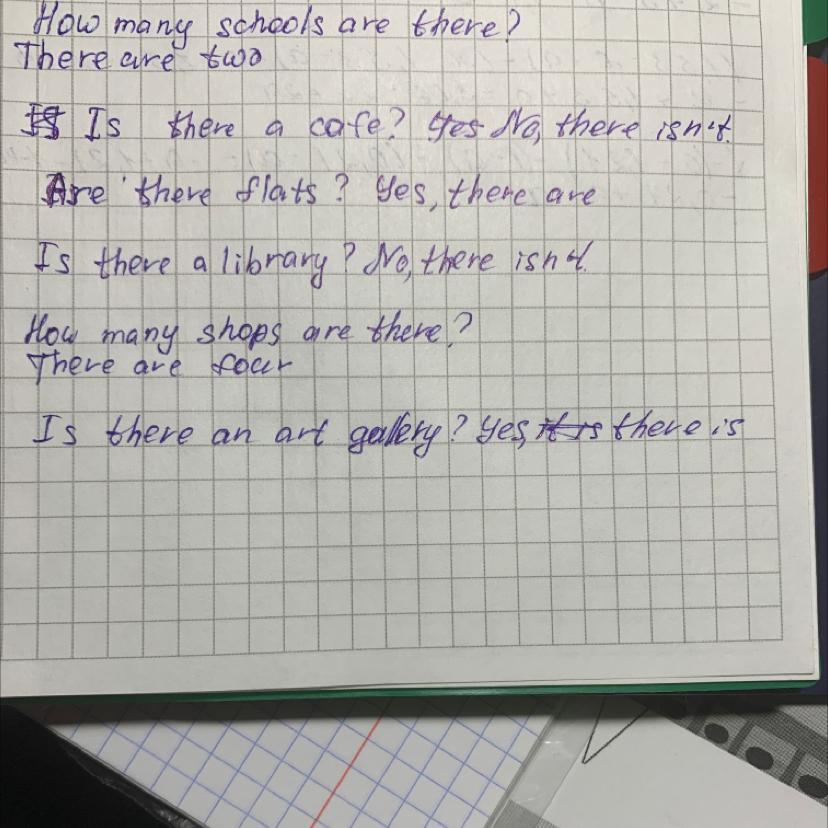 How many schools are there?
There are two
Is there a cafe? Yes No, there isn't.
Are there flats? Yes, there are
Is there a library? No, there isn't.
How many shops are there?
There are four
Is there an art gallery? Yes, it is there is